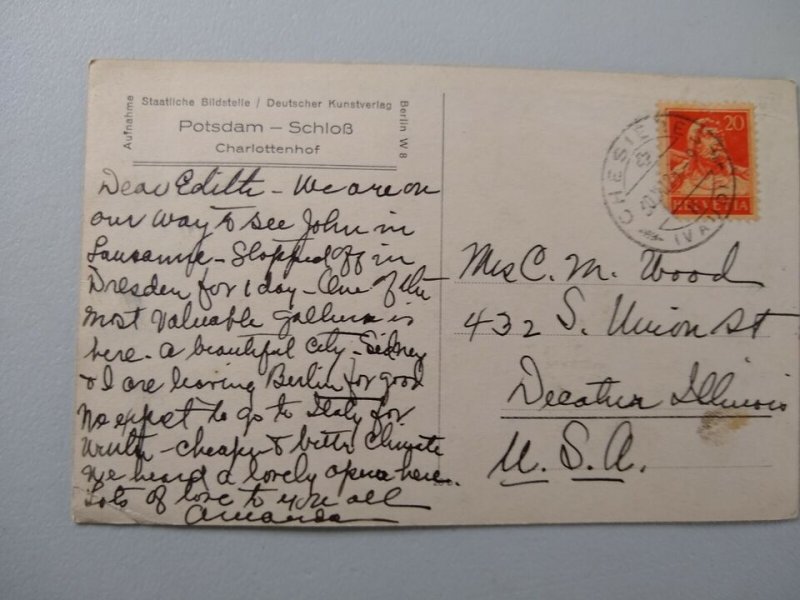 Aufnahme
Staatliche Bildstelle / Deutscher Kunstverlag
Berlin W 8
Potsdam – Schloß
Charlottenhof
Dear Edith – We are on
our way to see John in
Lausanne – Stopped off in
Dresden for 1 day – One of the
most valuable galleries is
here. a beautiful city – Sidney
& I are leaving Berlin for good
to go to Italy for
– cheaper & better climate
We heard a lovely opera here.
Lots of love to you all
Amanda
20
HELVETIA
Mrs C. M. Wood
432 S. Union St
Decatur Illinois
U. S. A.